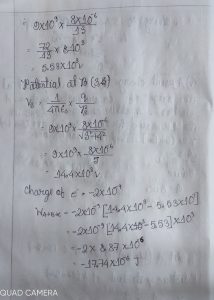 = 9×10⁹ × 8×10⁻⁶ / 13
= 72/13 × 10³
= 5.53×10³ v
Potential at B (3,4)
V_B = 1/4πε₀ × q/r₂
= 9×10⁹ × 8×10⁻⁶ / √3²+4²
= 9×10⁹ × 8×10⁻⁶ / 5
= 14.4×10³ v
Charge of = -2×10⁻⁹
= -2×10⁻⁹ [14.4×10³ - 5.53×10³]
= -2×10⁻⁹ [14.4 - 5.53]×10³
= -2× 8.87×10⁻⁶
= -17.74×10⁻⁶ J
QUAD CAMERA